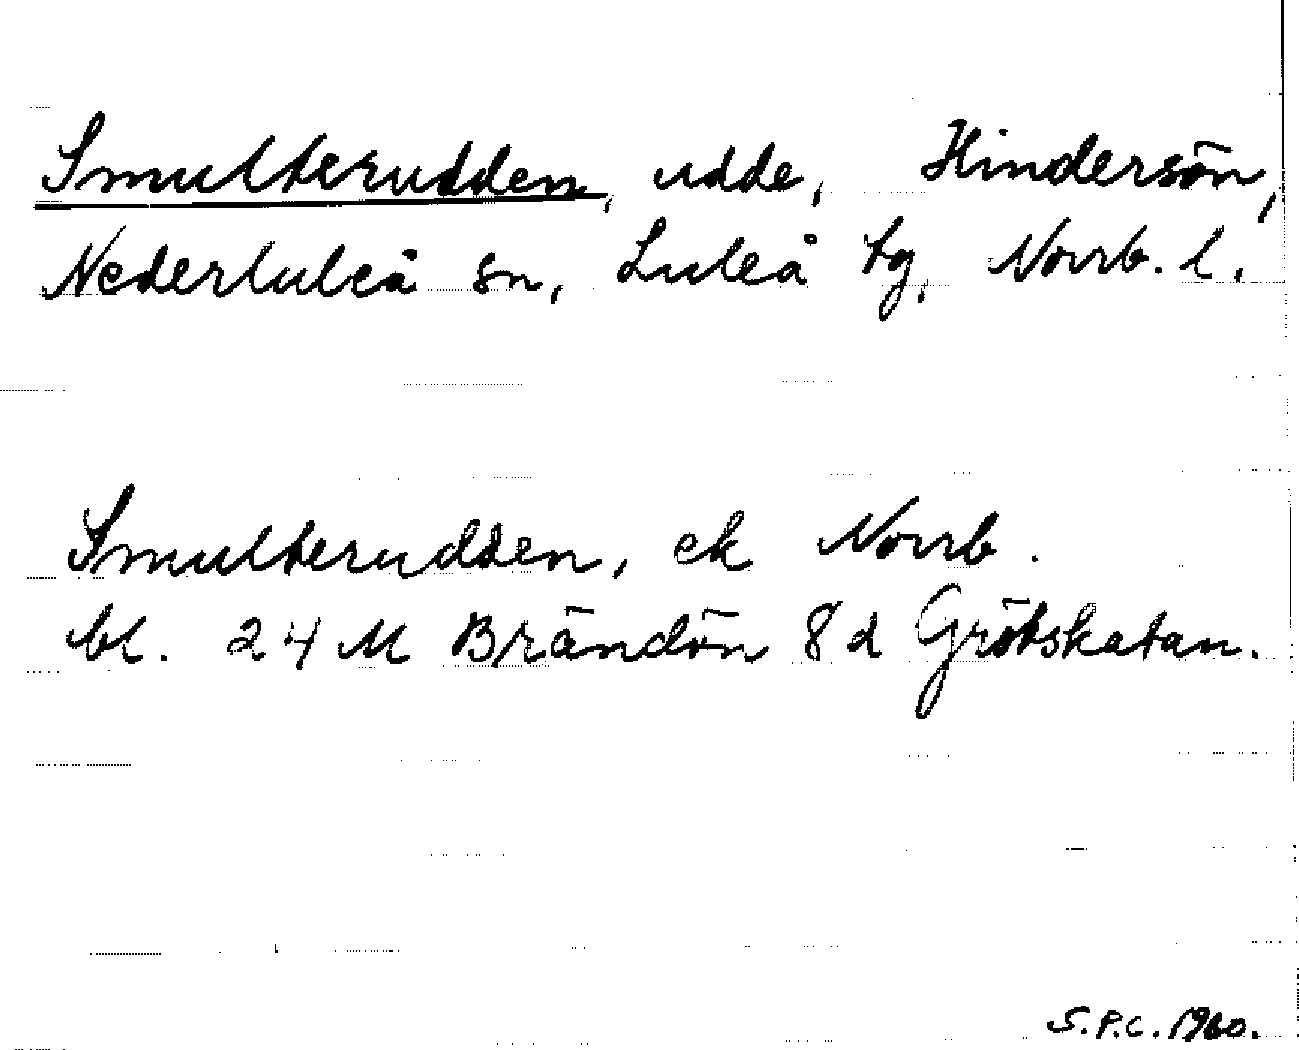 Smulterudden, udde, Hindersön,
Nederluleå sn, Luleå tg, Norrb. l.
Smulterudden, ek Norrb.
bl. 24 M Brändön 8 d Grötskatan.
S.P.C. 1960.